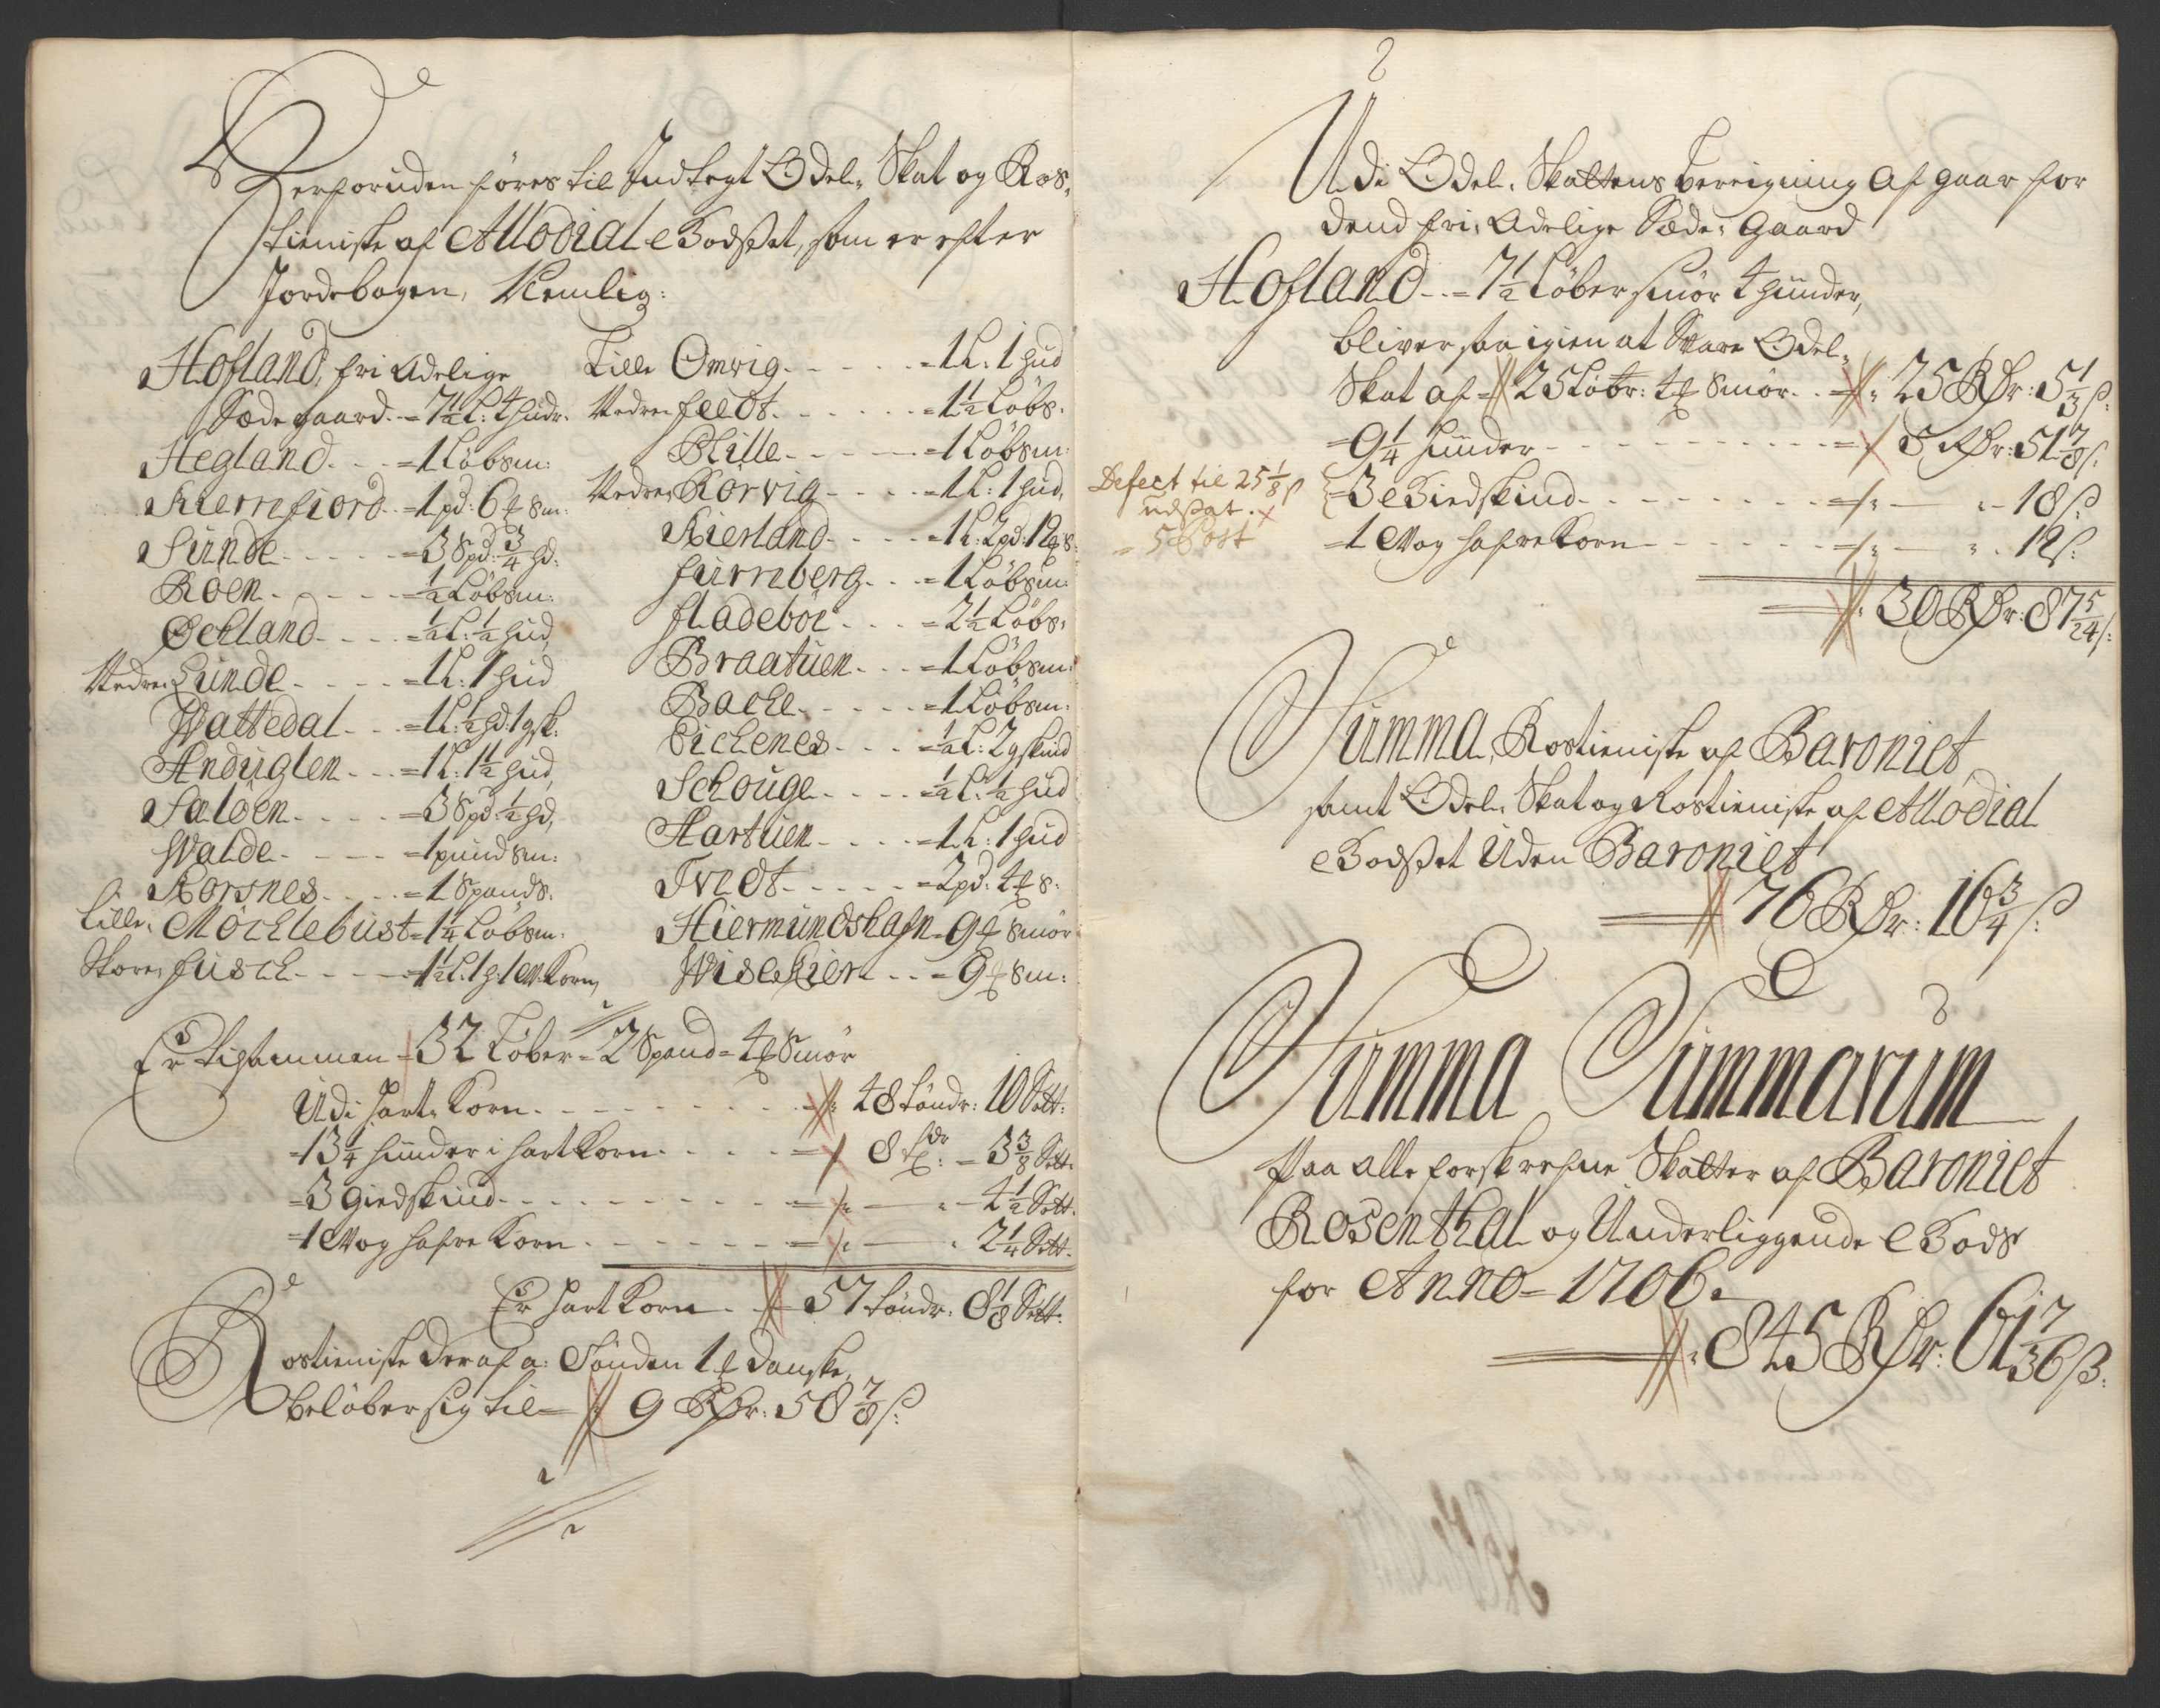 Herforuden föres til Indtegt Odel, Skat og Ros,
tieniste af Allodial Godset, som er efter
Jordebogen, Nemlig:
Hofland, fri Adelige
Sædegaard. = 7½ L: 4 hudr.
Hegland. - - = 1 Löbsm:
Kierrefiord. - = 1 pd: 6 ℔ Sm:
Sunde - - - - = 3 Spd: ¾ hd:
Roen. - - - - = ½ Löbsm:
Öckland - - - = ½ L: ½ hud,
Nedre Lunde - - - = 1 L: 1 hud
Wattedal - - = 1 L: ½ hd: 1 gsk:
Anduglen - - = 1 L: 1½ hud,
Salöen - - - = 3 Spd: ½ hd,
Walde - - - = 1 pund sm:
Korsnes - - - = 1 Spands.
Lille, Möcklebust = 1¼ Löbsm:
Store, Fusck - - - = 1½ L: 1 h: 1 W: Korn,
Lille Omvig - - - - = 1 L: 1 hud
Nedre Feedt - - - - = 1½ Löbs.
Rille - - - - = 1 Löbsm:
Nedre Körvig - - - - = 1 L: 1 hud,
Kierland - - - - = 1 L: 2 pd: 12 ℔ s.
Furreberg - - = 1 Löbsm:
Fladeböe - - - = 2½ Löbs.
Braatuen - - - = 1 Löbsm:
Backe - - - - = 1 Löbsm:
Eickenes - - - = ½ L: 2 gskind
Schouge - - - = ½ L: ½ hud
Hartuen - - - = 1 L: 1 hud
Tvedt - - - - = 2 pd: 4 ℔ s.
Hiermundshafn = 9 ℔ Smör
Wisekier - - = 9 ℔ sm:
Er tilsammen = 32 Löber = 2 Spand = 4 ℔ Smör
Udi hart Korn - - - - 48 töndr: 10 Sett:
= 13¼ hunder i hart Korn - - - - 8 tdr: = 3⅜ Sett.
= 3 giedskind - - - - 4½ Sett.
= 1 Wog hafre Korn - - - - 2¼ Sett.
Er hart Korn - - 57 töndr: 8⅛ Sett.
Rostieniste deraf a: Tönden 1 ℔ danske,
belöber sig til = 9 Rdr: 58⅞ s:
2
Udi Odel, Skattens bereigning Afgaar for
dend fri, Adelige Sæde, Gaard
Hofland - = 7½ Löber smör 4 hunder,
bliver saa igien at Svare Odel,
Skat af = 25 Löbr: 4 ℔ Smör - - 25 Rdr: 5⅓ s:
= 9¼ hunder - - - - 5 Rdr: 51⅞ s:
= 3 Giedskind - - - - 18 s
= 1 Wog hafre Korn - - - - 12 s:
Defect til 25⅛ s
udsat.
= 5 Post
30 Rdr: 87 5/24 s:
Summa, Rostieniste af Baroniet
samt Odel, Skat og Rostieniste af Allodial
Godset Uden Baroniet
76 Rdr: 16¾ s:
Summa Summarum
Paa alle forskrefne Skatter af Baroniet
Rosenthal og Underliggende Gods
for Anno = 1706.
845 Rdr: 61 7/36 s: